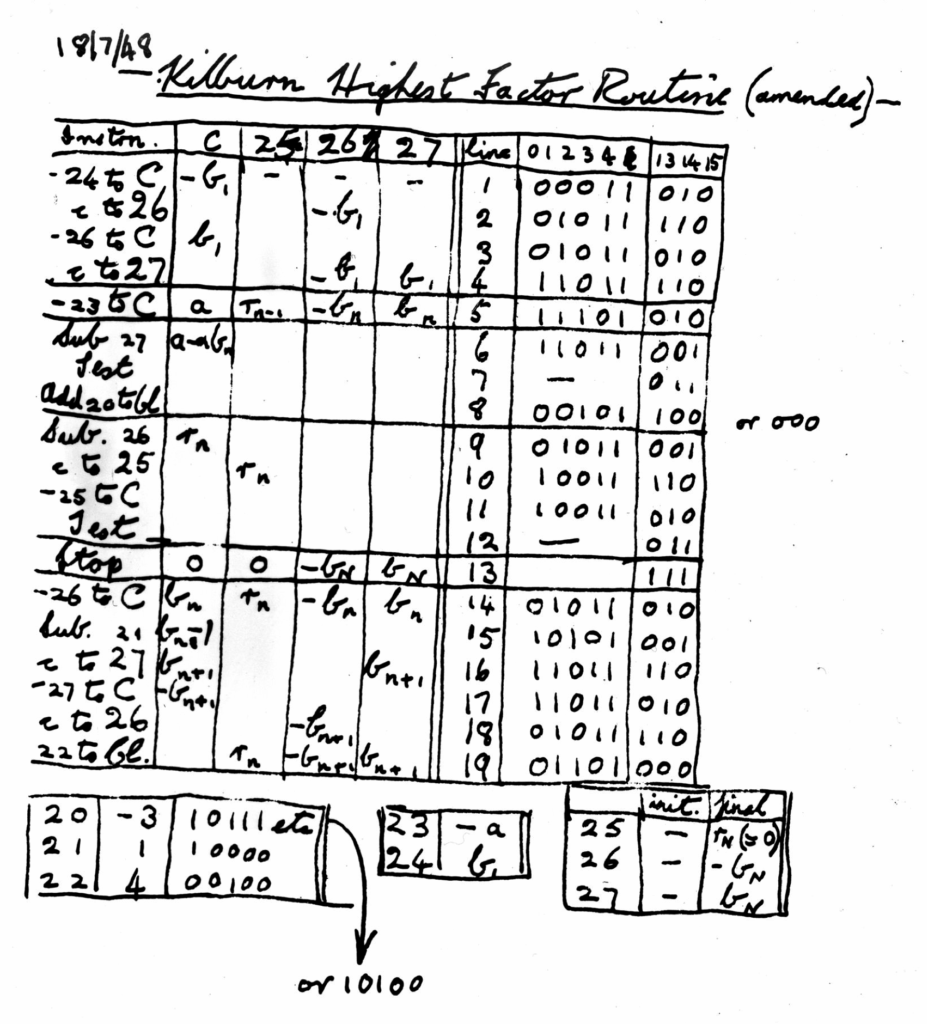 18/7/48
Kilburn Highest Factor Routine (amended)—
Instrn. C 25 26 27 line 0 1 2 3 4 13 14 15
-24 to C -b₁ - - - 1 00011 010
c to 26 -b₁ 2 01011 110
-26 to C b₁ 3 01011 010
c to 27 -b₁ b₁ 4 11011 110
-23 to C a rₙ₋₁ -bₙ bₙ 5 11101 010
Sub 27 a-abₙ 6 11011 001
Test 7 — 011
Add 20 to bl 8 00101 100 or 000
Sub. 26 rₙ 9 01011 001
c to 25 rₙ 10 10011 110
-25 to C 11 10011 010
Test 12 — 011
Stop 0 0 -b_N b_N 13 111
-26 to C bₙ rₙ -bₙ bₙ 14 01011 010
Sub. 21 15 10101 001
c to 27 bₙ₊₁ bₙ₊₁ 16 11011 110
-27 to C -bₙ₊₁ 17 11011 010
c to 26 -bₙ₊₁ 18 01011 110
22 to bl. rₙ -bₙ₊₁ bₙ₊₁ 19 01101 000
20 -3 10111 etc
21 1 10000
22 4 00100
or 10100
23 -a
24 b₁
init. final
25 - r_N (=0)
26 - -b_N
27 - b_N